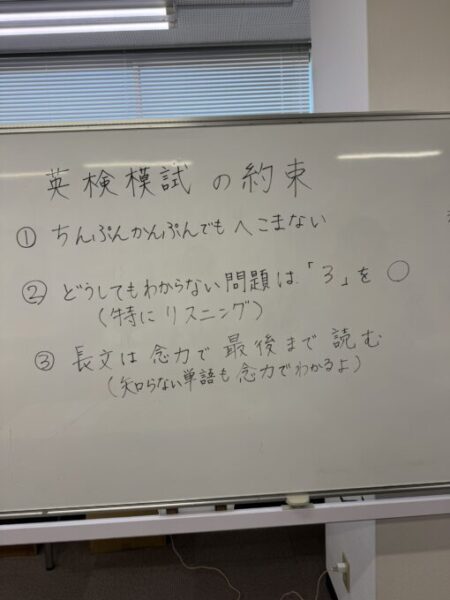 英検模試の約束
① ちんぷんかんぷんでもへこまない
② どうしてもわからない問題は「3」を○
(特にリスニング)
③ 長文は念力で最後まで読む
(知らない単語も念力でわかるよ)